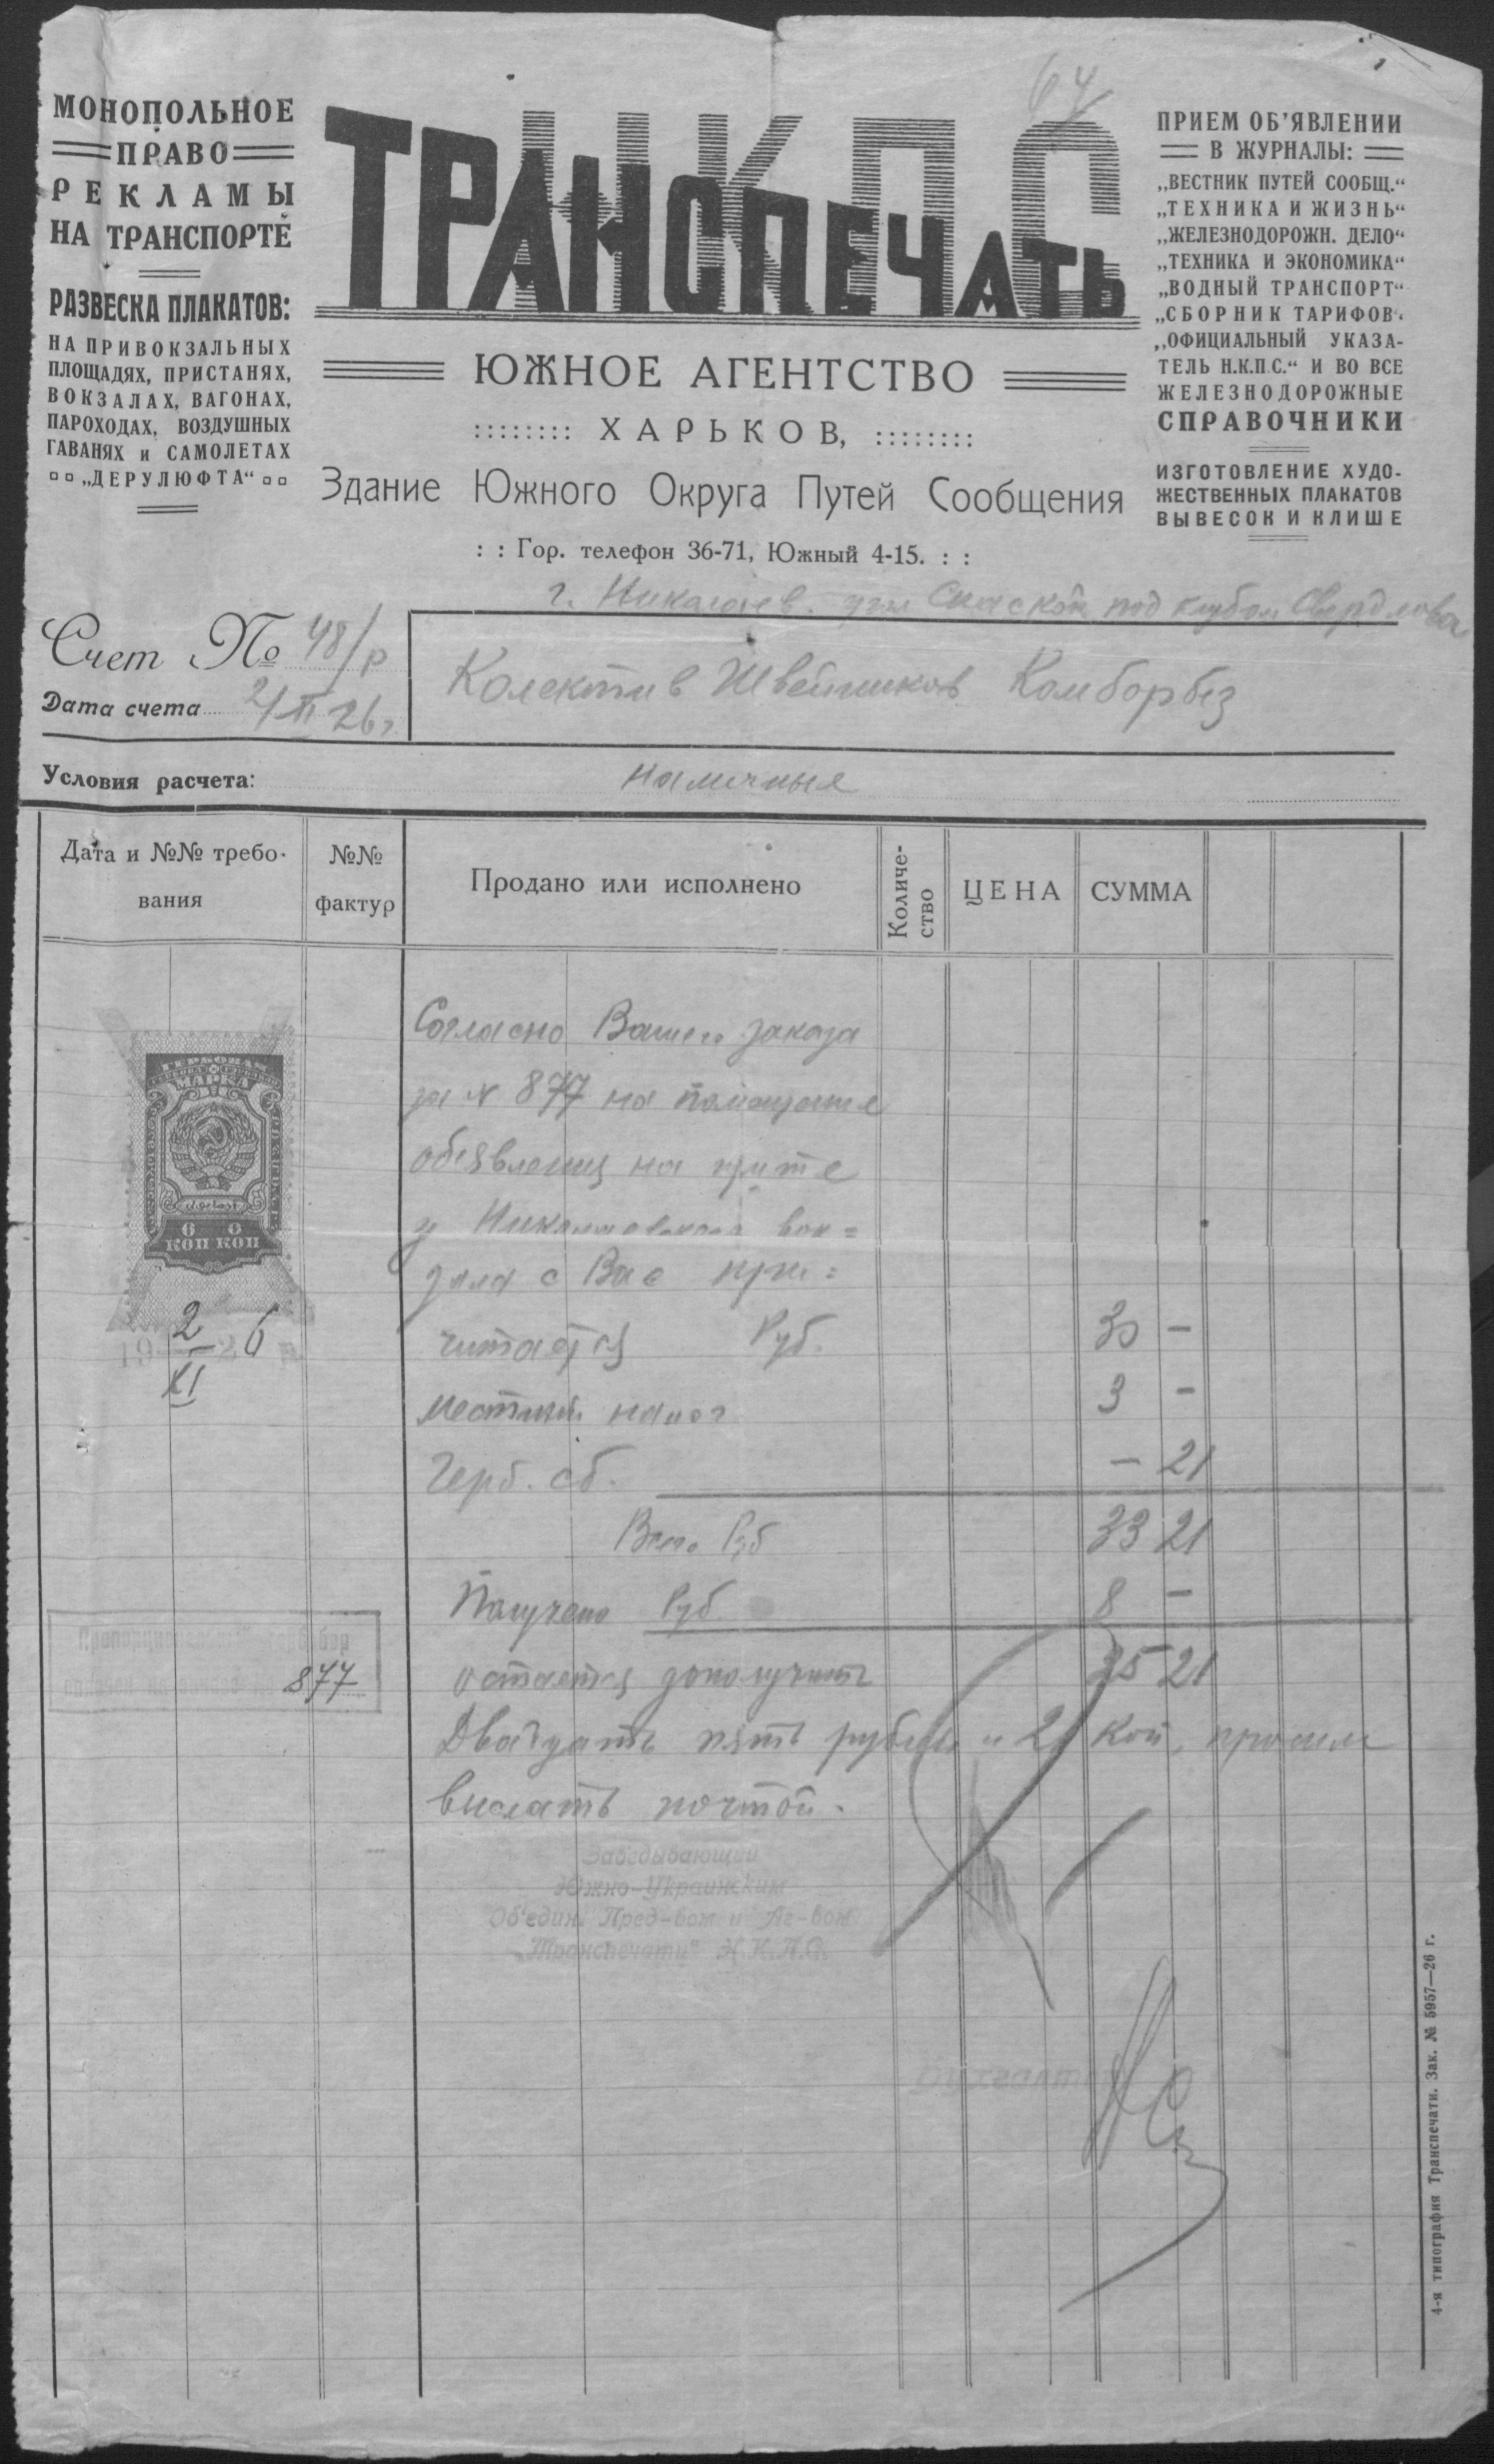 64
МОНОПОЛЬНОЕ
ПРАВО
РЕКЛАМЫ
НА ТРАНСПОРТЕ
РАЗВЕСКА ПЛАКАТОВ:
НА ПРИВОКЗАЛЬНЫХ
ПЛОЩАДЯХ, ПРИСТАНЯХ,
ВОКЗАЛАХ, ВАГОНАХ,
ПАРОХОДАХ, ВОЗДУШНЫХ
ГАВАНЯХ и САМОЛЕТАХ
„ДЕРУЛЮФТА“
НКПС
ТРАНСПЕЧАТЬ
ЮЖНОЕ АГЕНТСТВО
ХАРЬКОВ,
Здание Южного Округа Путей Сообщения
: : Гор. телефон 36-71, Южный 4-15. : :
ПРИЕМ ОБ'ЯВЛЕНИИ
В ЖУРНАЛЫ:
„ВЕСТНИК ПУТЕЙ СООБЩ.“
„ТЕХНИКА И ЖИЗНЬ“
„ЖЕЛЕЗНОДОРОЖН. ДЕЛО“
„ТЕХНИКА И ЭКОНОМИКА“
„ВОДНЫЙ ТРАНСПОРТ“
„СБОРНИК ТАРИФОВ“
„ОФИЦИАЛЬНЫЙ УКАЗА-
ТЕЛЬ Н.К.П.С.“ И ВО ВСЕ
ЖЕЛЕЗНОДОРОЖНЫЕ
СПРАВОЧНИКИ
ИЗГОТОВЛЕНИЕ ХУДО-
ЖЕСТВЕННЫХ ПЛАКАТОВ
ВЫВЕСОК И КЛИШЕ
г. Николаев. угл Спаской под клубом Свердлова
Счет № 48/р
Дата счета 2/XI 26 г.
Колектив Швейников Комборбез
Условия расчета: наличные
Дата и №№ требо-
вания
№№
фактур
Продано или исполнено
Количе-
ство
ЦЕНА
СУММА
Согласно Вашего заказа
за N 877 на помещение
об'явления на щите
у Николаевского вок=
зала с Вас при=
читается Руб. 30 -
местный налог 3 -
Герб. сб. - 21
Всего Руб 33 21
Получено Руб. 8 -
остается дополучить 25 21
Двадцать пять рублей и 21 коп, просим
выслать почтой.
ГЕРБОВАЯ
МАРКА
6 0
КОП КОП
19 2/XI 26 г.
877
Заведывающий
Южно-Украинским
Об'един. Пред-вом и Аг-вом
„Транспечати“ Н.К.П.С.
Бухгалтер
4-я типография Транспечати. Зак. № 5957—26 г.